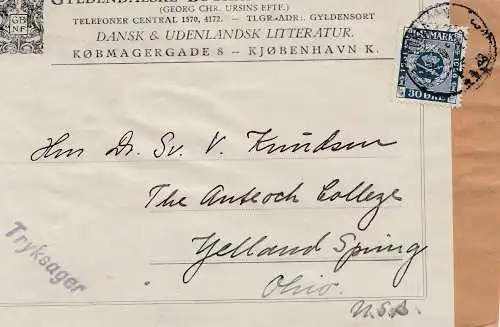 GYLDENDALSKE
(GEORG CHR. URSINS EFTF.)
TELEFONER CENTRAL 1570, 4172. – TLGR-ADR: GYLDENSORT
DANSK & UDENLANDSK LITTERATUR.
KØBMAGERGADE 8 – KJØBENHAVN K.
GB
NF
DANMARK
30 ØRE
Hrn Dr. Sv. V. Knudsen
The Anteoch College
Yelland Spring
Ohio.
U.S.A.
Tryksager